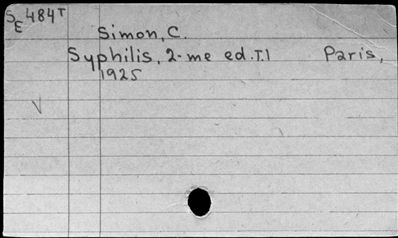 S E 484 T
Simon, C.
Syphilis, 2-me ed. T.1 Paris,
1925